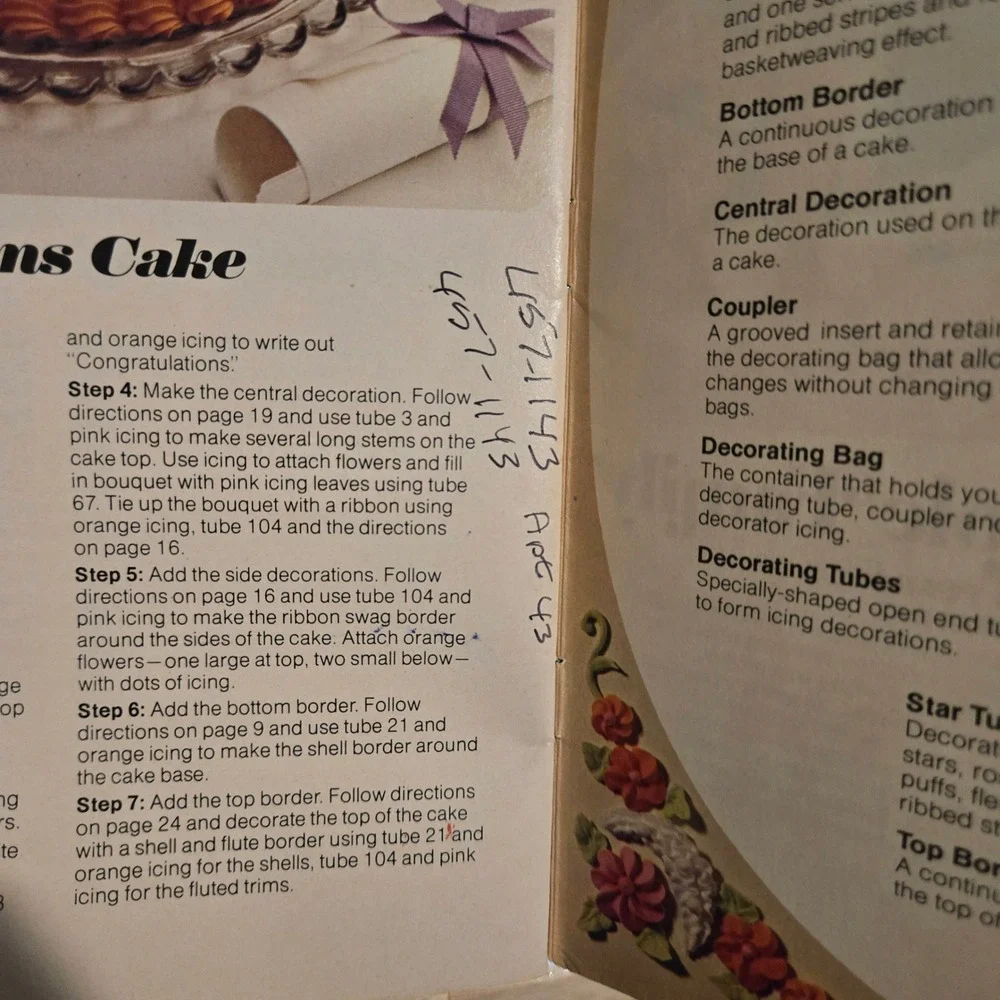 ns Cake
and orange icing to write out
"Congratulations."
Step 4: Make the central decoration. Follow
directions on page 19 and use tube 3 and
pink icing to make several long stems on the
cake top. Use icing to attach flowers and fill
in bouquet with pink icing leaves using tube
67. Tie up the bouquet with a ribbon using
orange icing, tube 104 and the directions
on page 16.
Step 5: Add the side decorations. Follow
directions on page 16 and use tube 104 and
pink icing to make the ribbon swag border
around the sides of the cake. Attach orange
flowers—one large at top, two small below—
with dots of icing.
Step 6: Add the bottom border. Follow
directions on page 9 and use tube 21 and
orange icing to make the shell border around
the cake base.
Step 7: Add the top border. Follow directions
on page 24 and decorate the top of the cake
with a shell and flute border using tube 21 and
orange icing for the shells, tube 104 and pink
icing for the fluted trims.
ge
op
ng
rs.
te
457-1143 Apt 43
457-1143
and one
and ribbed stripes and
basketweaving effect.
Bottom Border
A continuous decoration
the base of a cake.
Central Decoration
The decoration used on th
a cake.
Coupler
A grooved insert and retain
the decorating bag that allo
changes without changing
bags.
Decorating Bag
The container that holds you
decorating tube, coupler and
decorator icing.
Decorating Tubes
Specially-shaped open end tu
to form icing decorations.
Star Tu
Decorat
stars, ro
puffs, fle
ribbed st
Top Bor
A continu
the top of